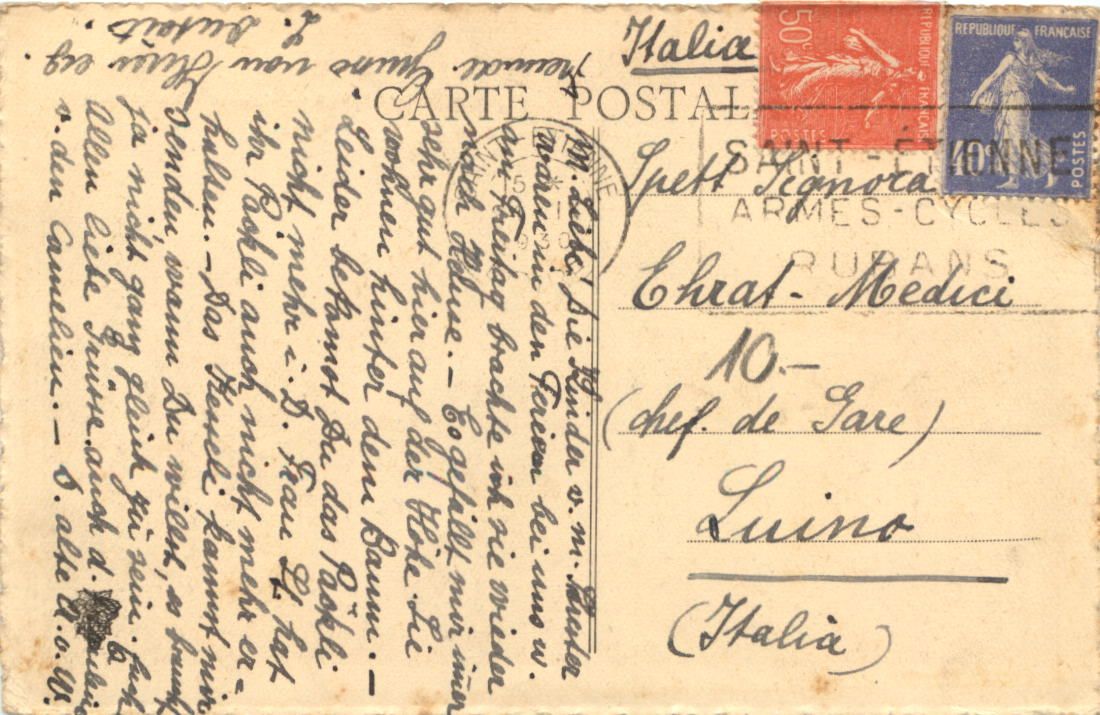 Italia
CARTE POSTALE
50c
POSTES
REPUBLIQUE FRANÇAISE
REPUBLIQUE FRANÇAISE
40c
POSTES
SAINT-ÉTIENNE
ARMES-CYCLES
RUBANS
SAINT ETIENNE
Spett Signora
Ehrat-Medici
10.-
(chef. de Gare)
Luino
(Italia)
M. Liebe! Die Kinder v. m.
waren in den Ferien bei uns u.
am Freitag brachte ich sie wieder
nach Hause. – Es gefällt mir imer
sehr gut hier auf der Höhe. Sie
wohnen hinter dem Baum. –
Leider bekomst Du das Päkli
nicht mehr i. D. Frau H hat
ihr Päkli auch nicht mehr er=
halten. – Das Hemdli kannst mir
senden, wann Du willst, es
ja nicht ganz gleich zu sein.
Allen liebe Grüsse auch d.
v. den Camelien. – D. alte
Gruss von Ihrer erg.
L.